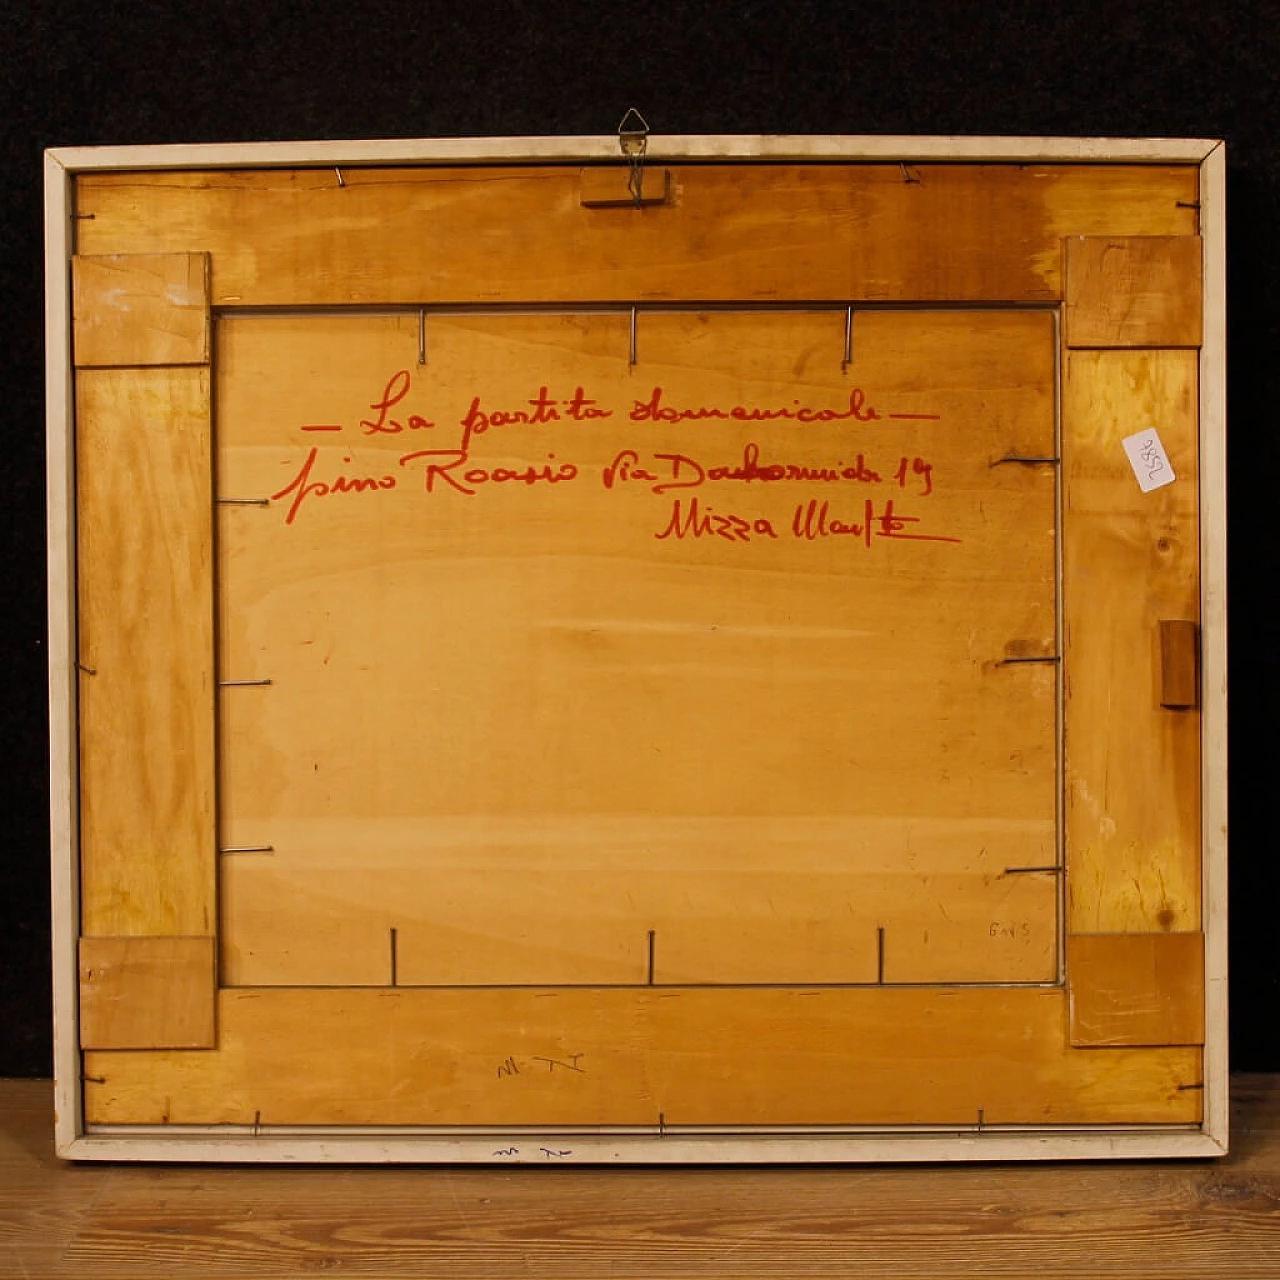 - La partita domenicale -
pino Roasio Via Dabormida 19
Nizza Monf.to
7852